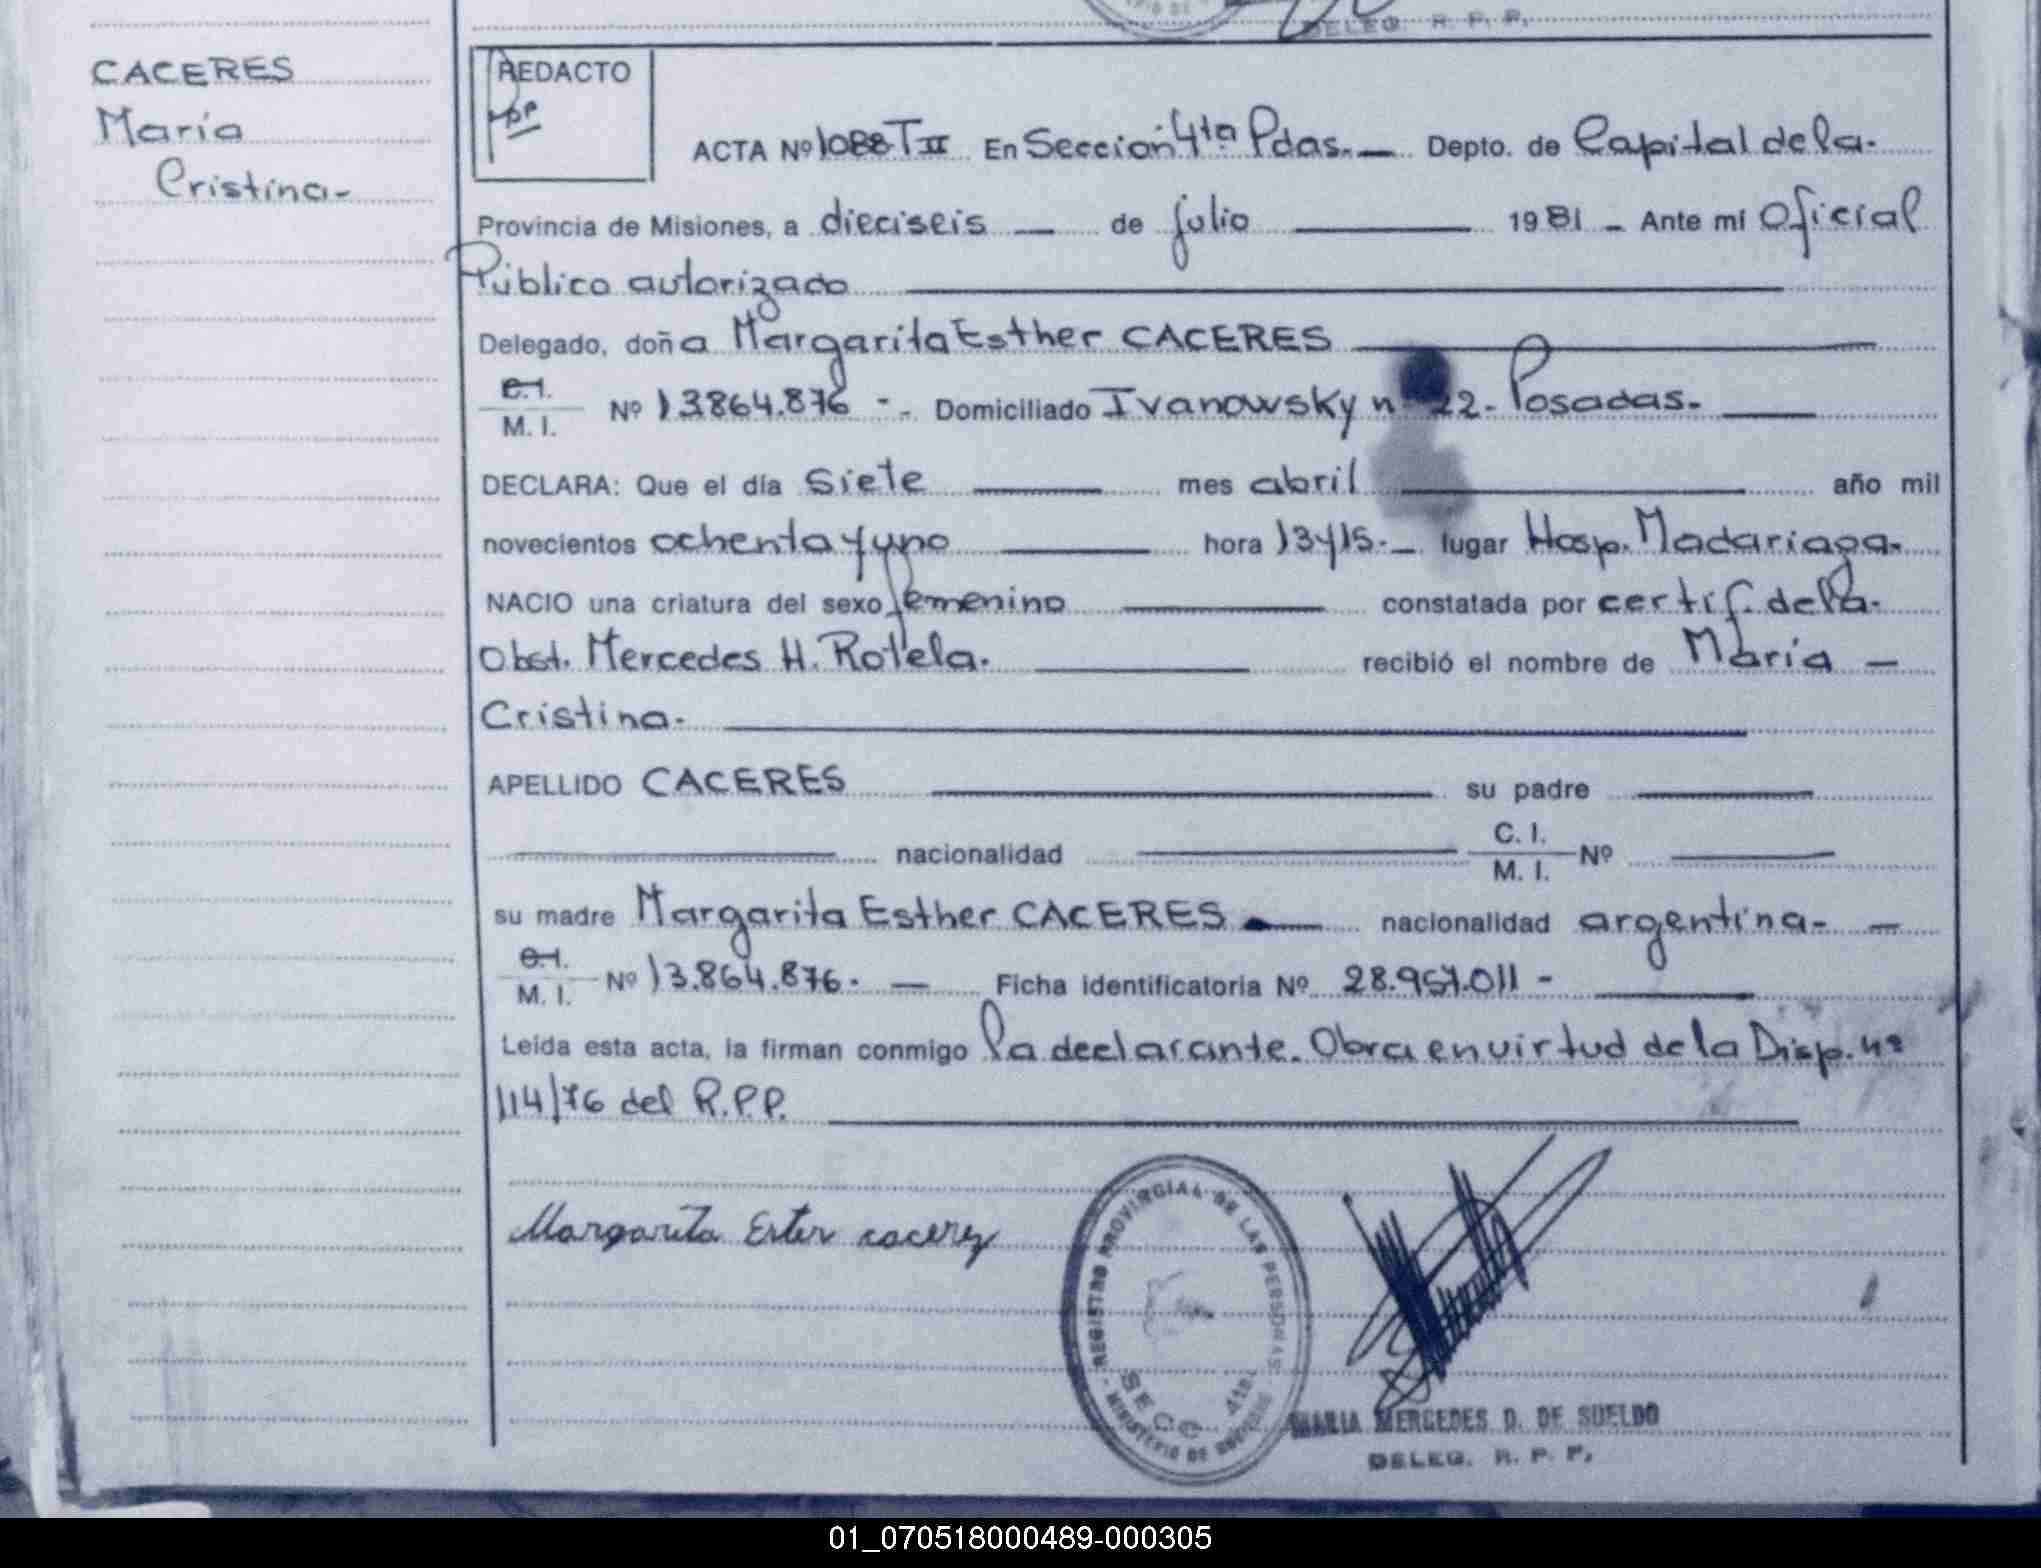 DELEG. R. P. P.
CACERES
María
Cristina-
REDACTO
ACTA Nº 1088 T II En Sección 4ta Pdas. — Depto. de Capital de la.
Provincia de Misiones, a dieciseis — de julio — 1981 — Ante mí Oficial
Público autorizado
Delegado, doña Margarita Esther CACERES
C.I.
M. I. Nº 13.864.876 - Domiciliado Ivanowsky nº 22- Posadas.
DECLARA: Que el día siete — mes abril — año mil
novecientos ochenta y uno — hora 13y15.— lugar Hosp. Madariaga.
NACIO una criatura del sexo femenino — constatada por certif. de la.
Obst. Mercedes H. Rotela. — recibió el nombre de María —
Cristina.
APELLIDO CACERES — su padre —
— nacionalidad — C. I.
M. I. Nº —
su madre Margarita Esther CACERES — nacionalidad argentina- —
C.I.
M. I. Nº 13.864.876. — Ficha identificatoria Nº 28.957.011 -
Leída esta acta, la firman conmigo la declarante. Obra en virtud de la Disp. nº
114/76 del R.P.P.
Margarita Ester cacerez
REGISTRO PROVINCIAL DE LAS PERSONAS
SECC. 4ta.
MINISTERIO DE GOBIERNO
MARIA MERCEDES D. DE SUELDO
DELEG. R. P. P.
01_070518000489-000305